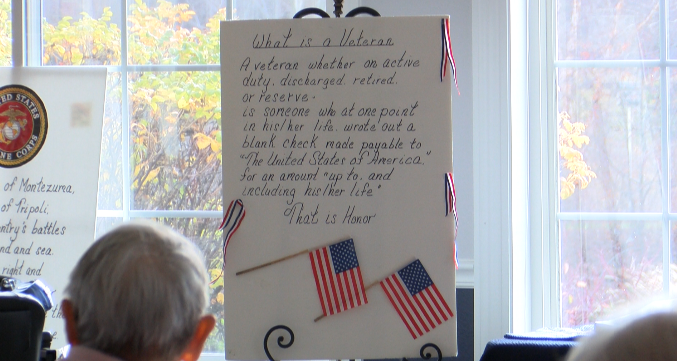 ED STATES
NE CORPS
of Montezuma,
of Tripoli,
ntry's battles
nd and sea.
right and
th
What is a Veteran
A veteran whether on active
duty, discharged, retired,
or reserve.
is someone who at one point
in his/her life, wrote out a
blank check made payable to
"The United States of America,"
for an amount "up to, and
including his/her life"
"That is Honor